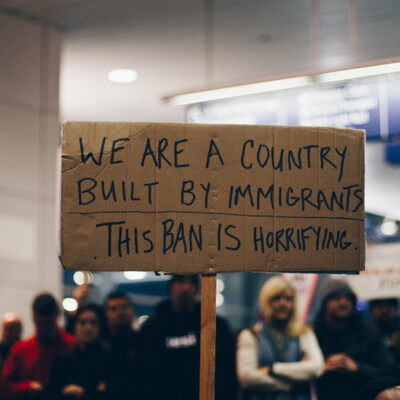 WE ARE A COUNTRY
BUILT BY IMMIGRANTS
THIS BAN IS HORRIFYING.